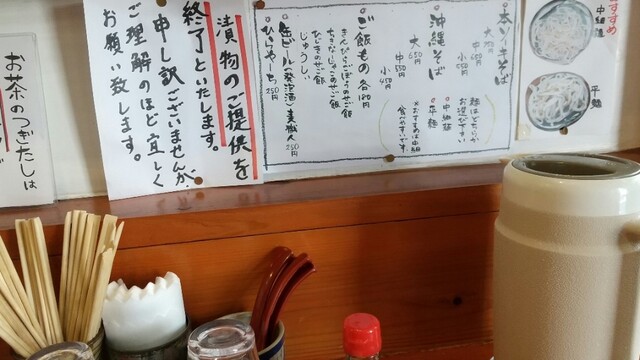 おすすめ
中細麺
平麺
本ソーキそば
大
中
小
麺はどちらか
お選び下さい
●中細麺
●平麺
(※おすすめは中細
食べやすいです。)
沖縄そば
大 650円
中 550円
小 450円
ご飯もの 各180円
きんぴらごぼうのせご飯
ちきなーじゃこのせご飯
ひじきのせご飯
じゅうしぃ
缶ビール(発泡酒)麦職人 250円
ひらやーち 250円
漬物のご提供を
終了といたします。
申し訳ございませんが、
ご理解のほど宜しく
お願い致します。
お茶のつぎたしは